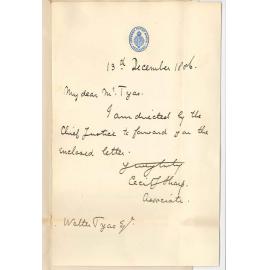 13th December 1886.
My dear Mr. Tyas.
I am directed by the
Chief Justice to forward you the
enclosed letter.
Yrs truly
Cecil J Sharp.
Associate.
Walter Tyas Esq.